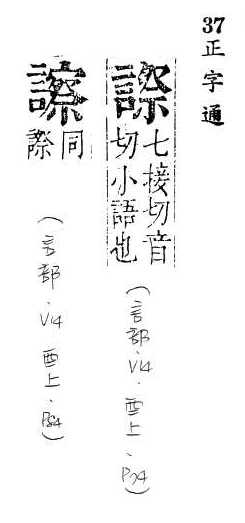 37正字通
䜁
七接切音
切小語也
(言部.V14.酉上.P74)
同
䜁
(言部.V14 酉上.P84)